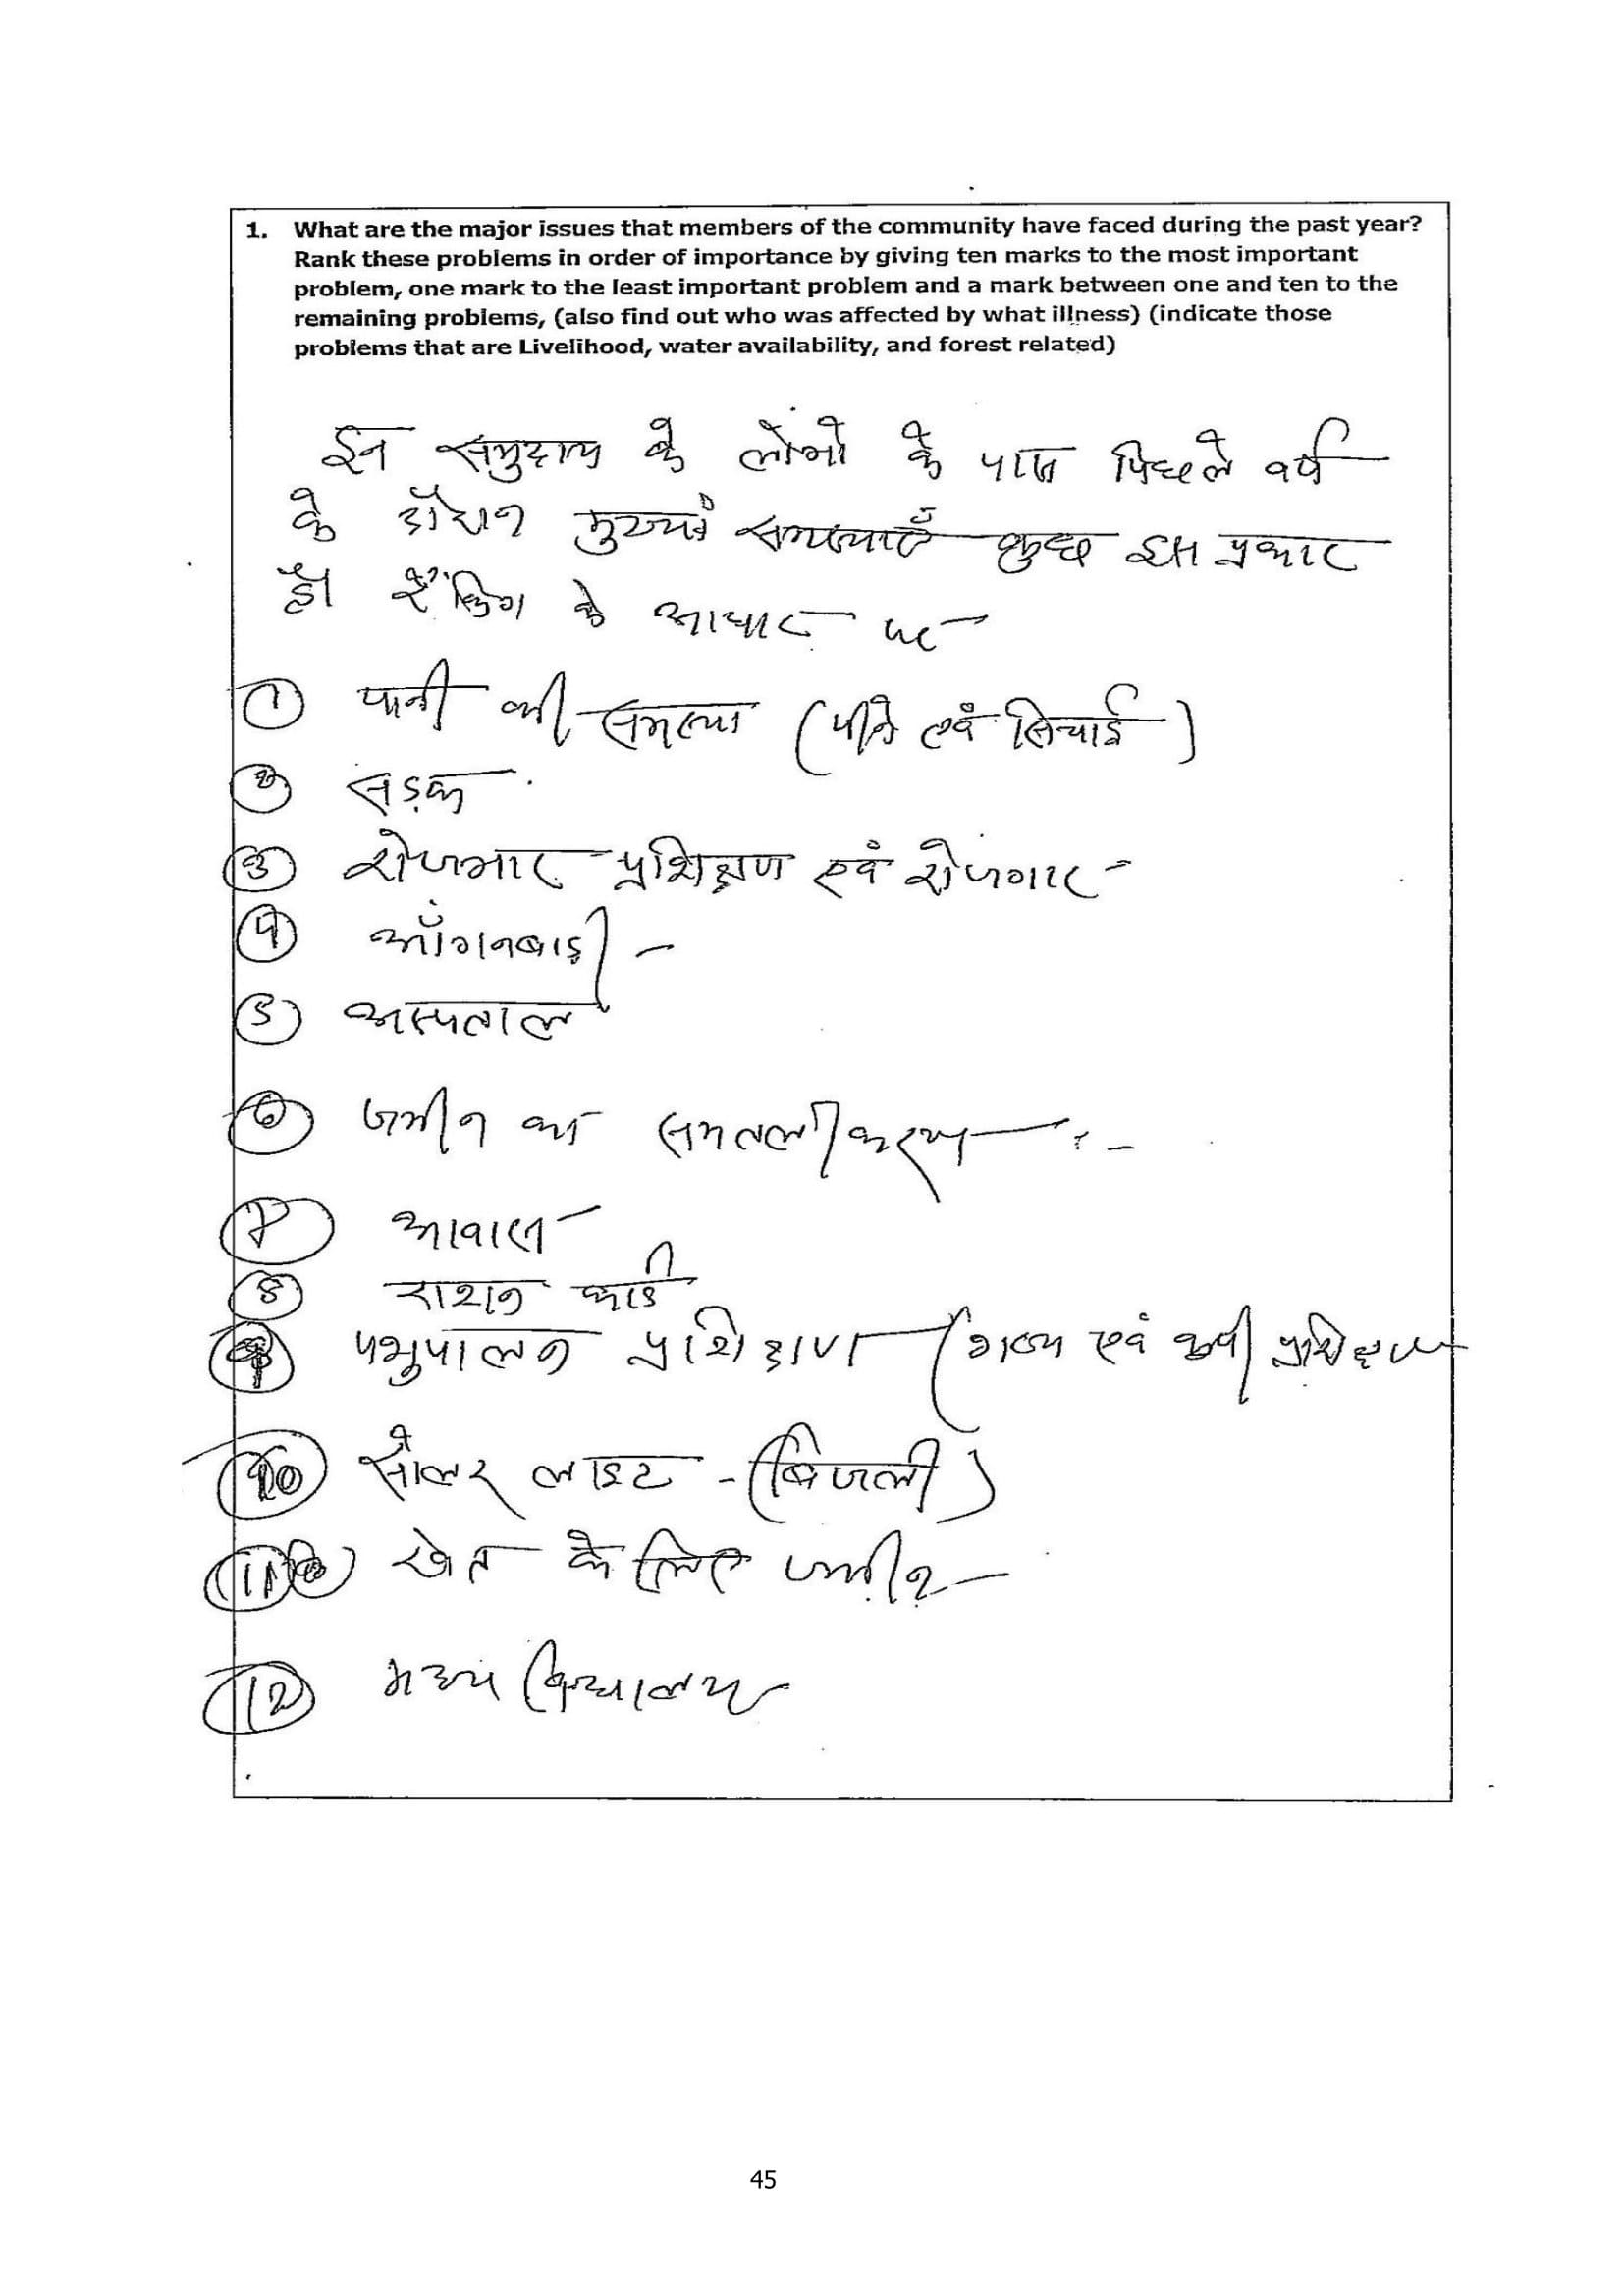 1. What are the major issues that members of the community have faced during the past year?
Rank these problems in order of importance by giving ten marks to the most important
problem, one mark to the least important problem and a mark between one and ten to the
remaining problems, (also find out who was affected by what illness) (indicate those
problems that are Livelihood, water availability, and forest related)
इन समुदाय के लोगो के पास पिछले वर्ष
के दौरान मुख्य समस्याएँ कुछ इस प्रकार
है। रैंकिंग के आधार पर
1 पानी की समस्या (पीने एवं सिचाई)
2 सड़क
3 रोजगार प्रशिक्षण एवं रोजगार -
4 आँगनबाड़ी -
5 अस्पताल
6 जमीन का समतलीकरण
7 आवास -
8 राशन कार्ड
9 पशुपालन प्रशिक्षण (गव्य एवं कृषी प्रशिक्षण
10 सोलर लाइट - (बिजली)
11 खेत के लिए जमीन -
12 मध्य विद्यालय
45